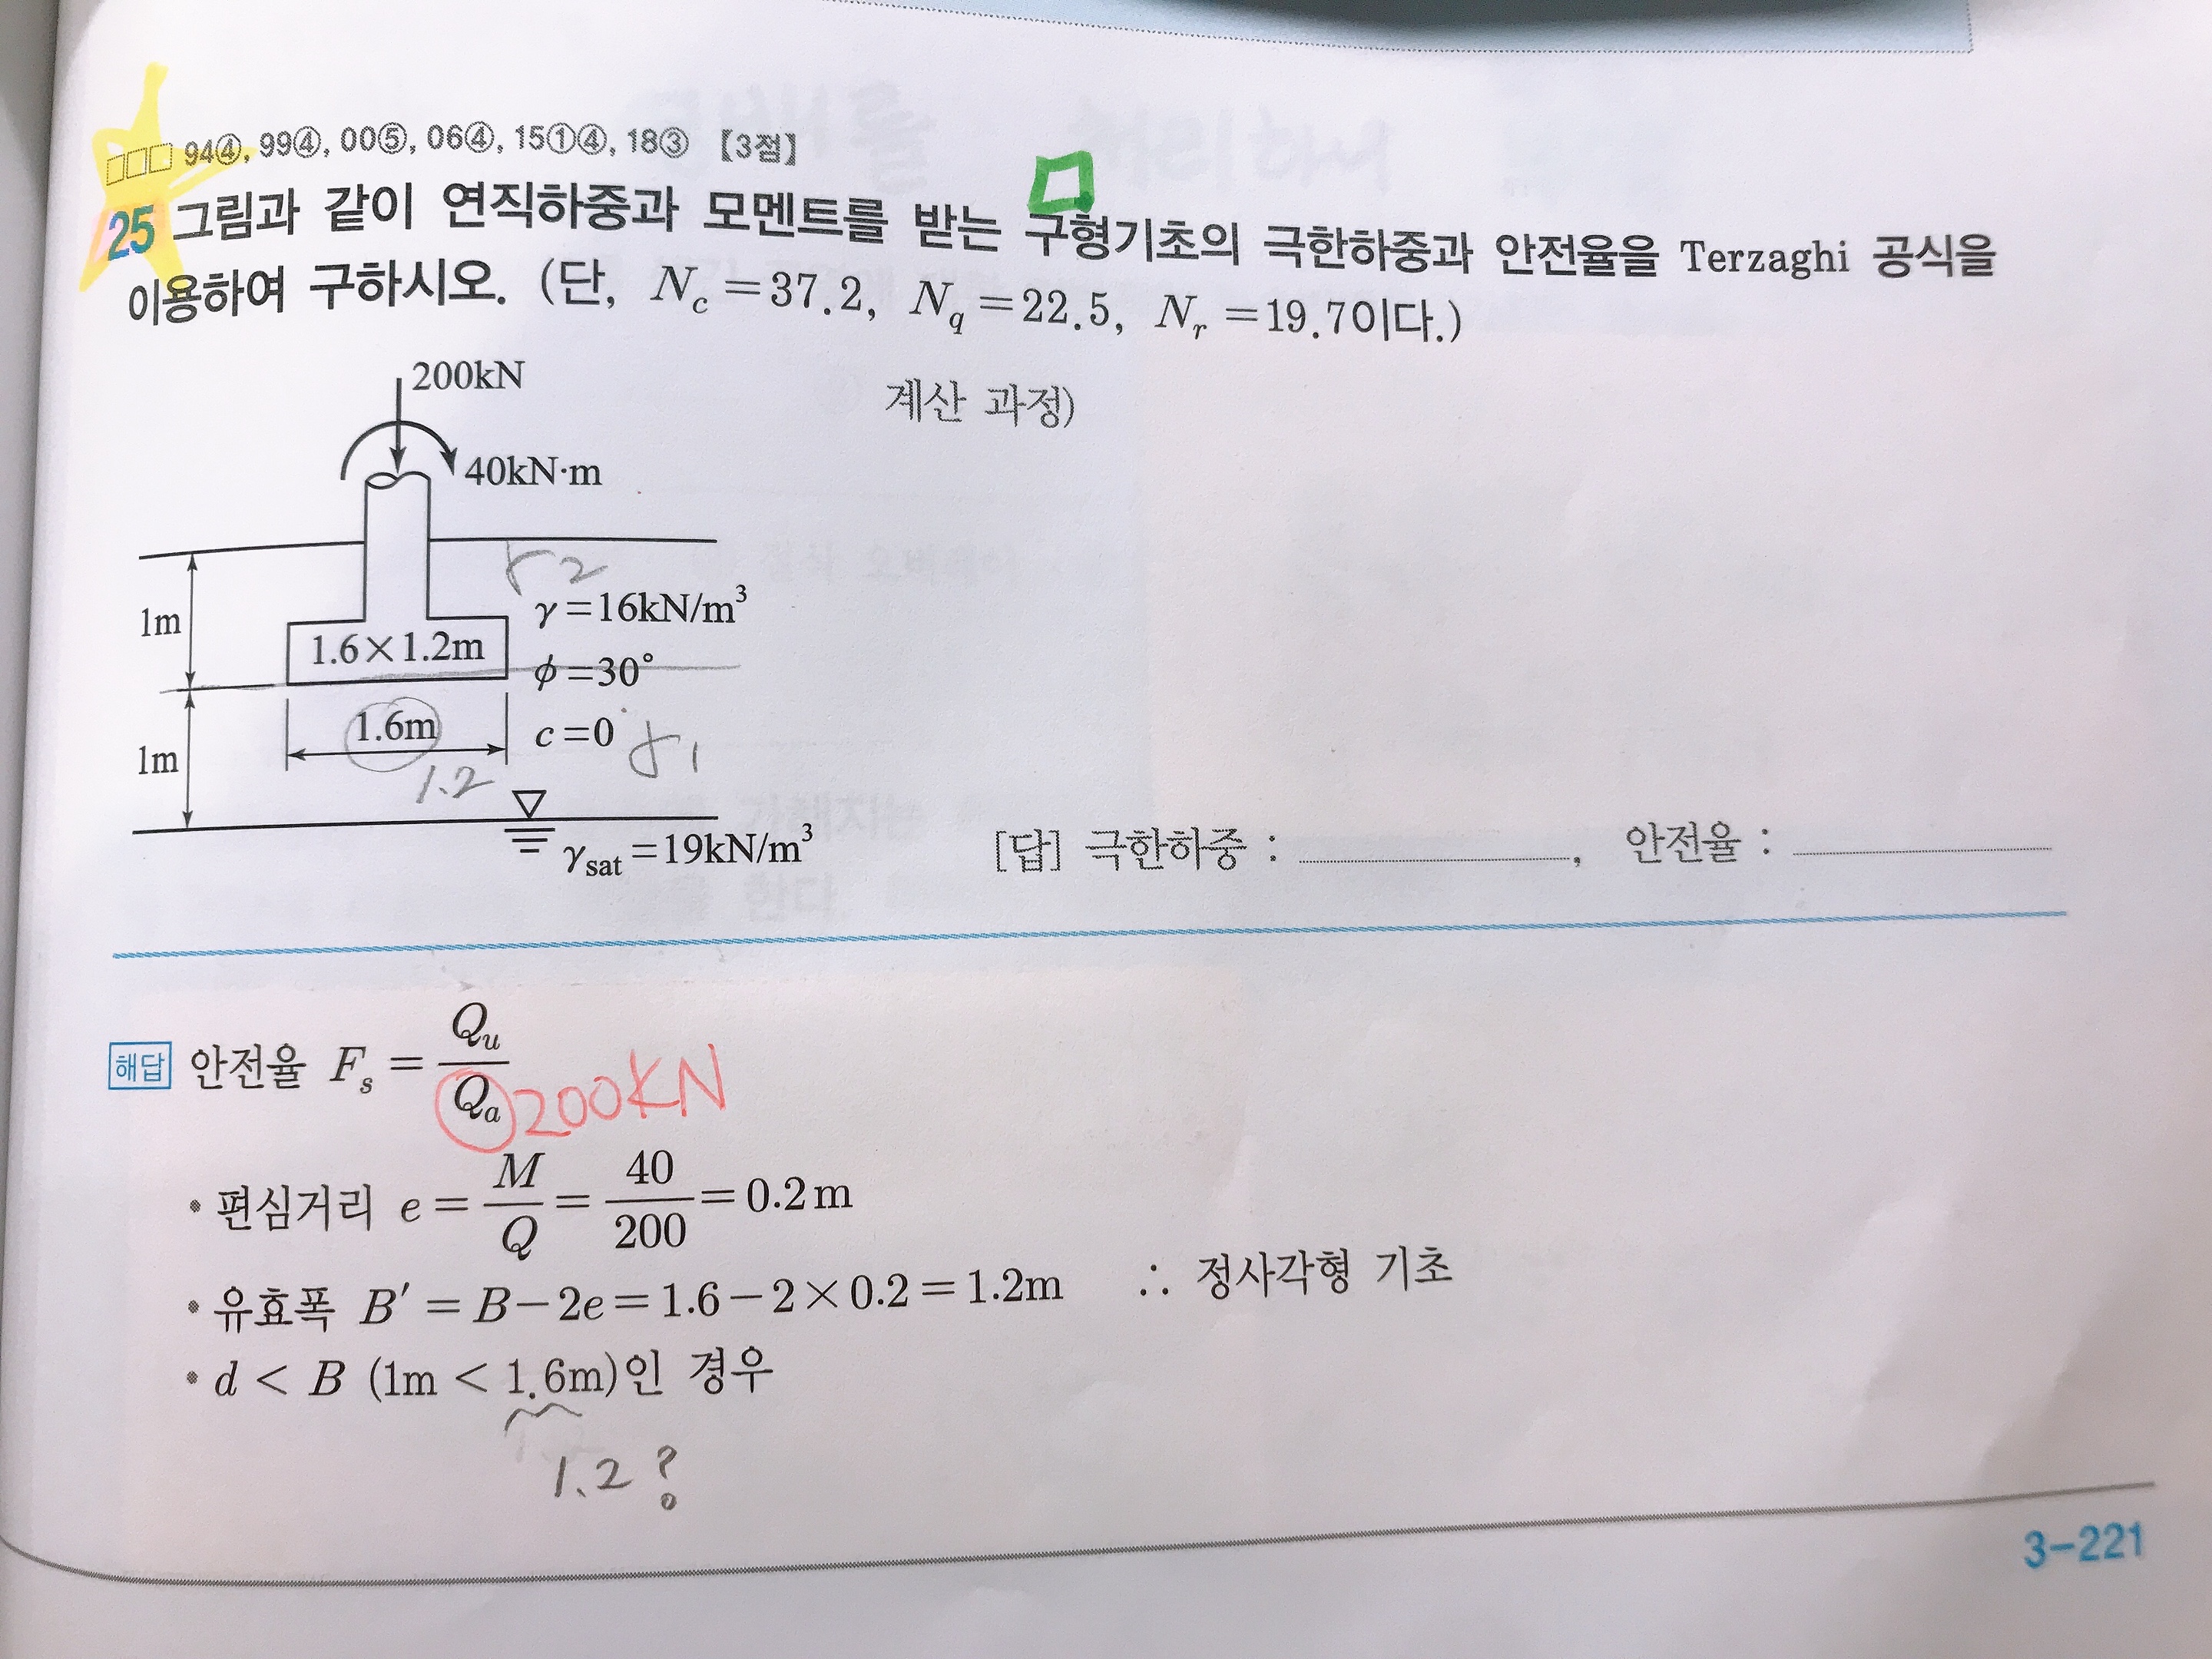 94④, 99④, 00⑤, 06④, 15①④, 18③ 【3점】
25 그림과 같이 연직하중과 모멘트를 받는 구형기초의 극한하중과 안전율을 Terzaghi 공식을
이용하여 구하시오. (단, N_c=37.2, N_q=22.5, N_r=19.7이다.)
계산 과정)
200kN
40kN·m
γ2
1m
γ=16kN/m³
1.6×1.2m
φ=30°
1.6m
c=0
γ1
1m
1.2
γ_sat=19kN/m³
[답] 극한하중 : , 안전율 :
해답 안전율 F_s = Q_u / Q_a 200KN
• 편심거리 e = M/Q = 40/200 = 0.2m
• 유효폭 B′ = B−2e = 1.6−2×0.2 = 1.2m ∴ 정사각형 기초
• d < B (1m < 1.6m)인 경우
1.2?
3-221